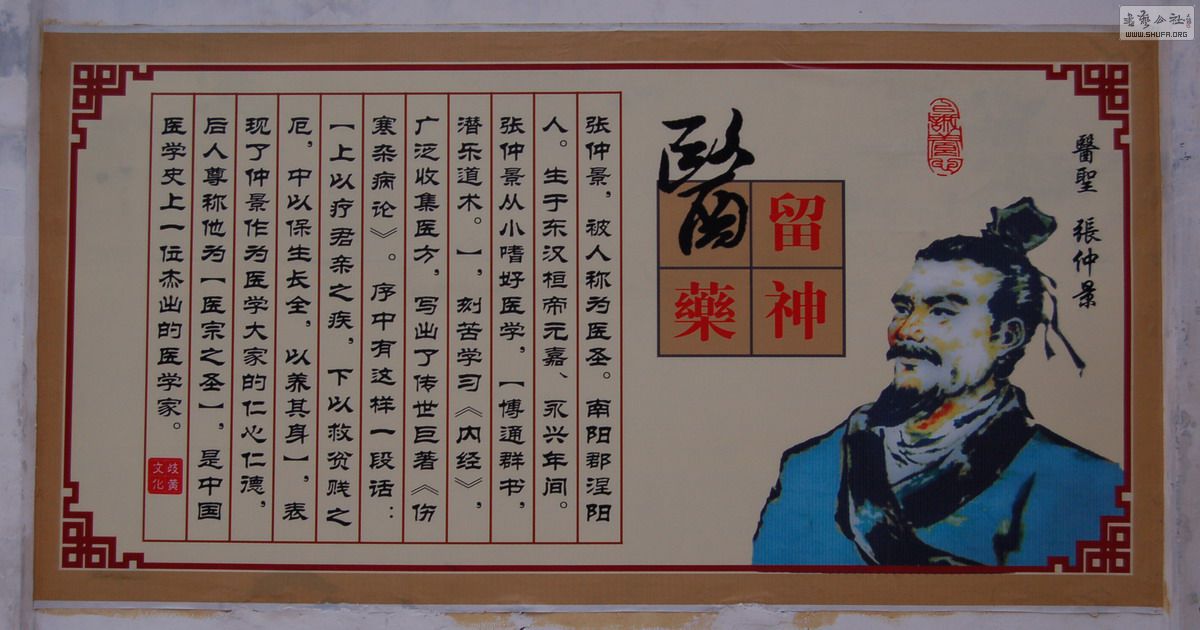 醫聖 張仲景
留神
醫藥
张仲景，被人称为医圣。南阳郡涅阳
人。生于东汉桓帝元嘉、永兴年间。
张仲景从小嗜好医学，【博通群书，
潜乐道术。】，刻苦学习《内经》，
广泛收集医方，写出了传世巨著《伤
寒杂病论》。序中有这样一段话：
【上以疗君亲之疾，下以救贫贱之
厄，中以保生长全，以养其身】，表
现了仲景作为医学大家的仁心仁德，
后人尊称他为【医宗之圣】，是中国
医学史上一位杰出的医学家。
歧黄
文化
書藝公社
WWW.SHUFA.ORG